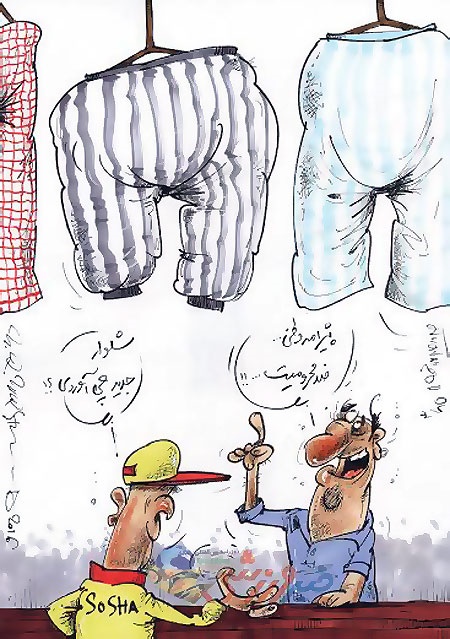 شلوار
جدید چی آوردی ؟!
پیژامه وطنی...
ضد محرومیت...!!
SOSHA